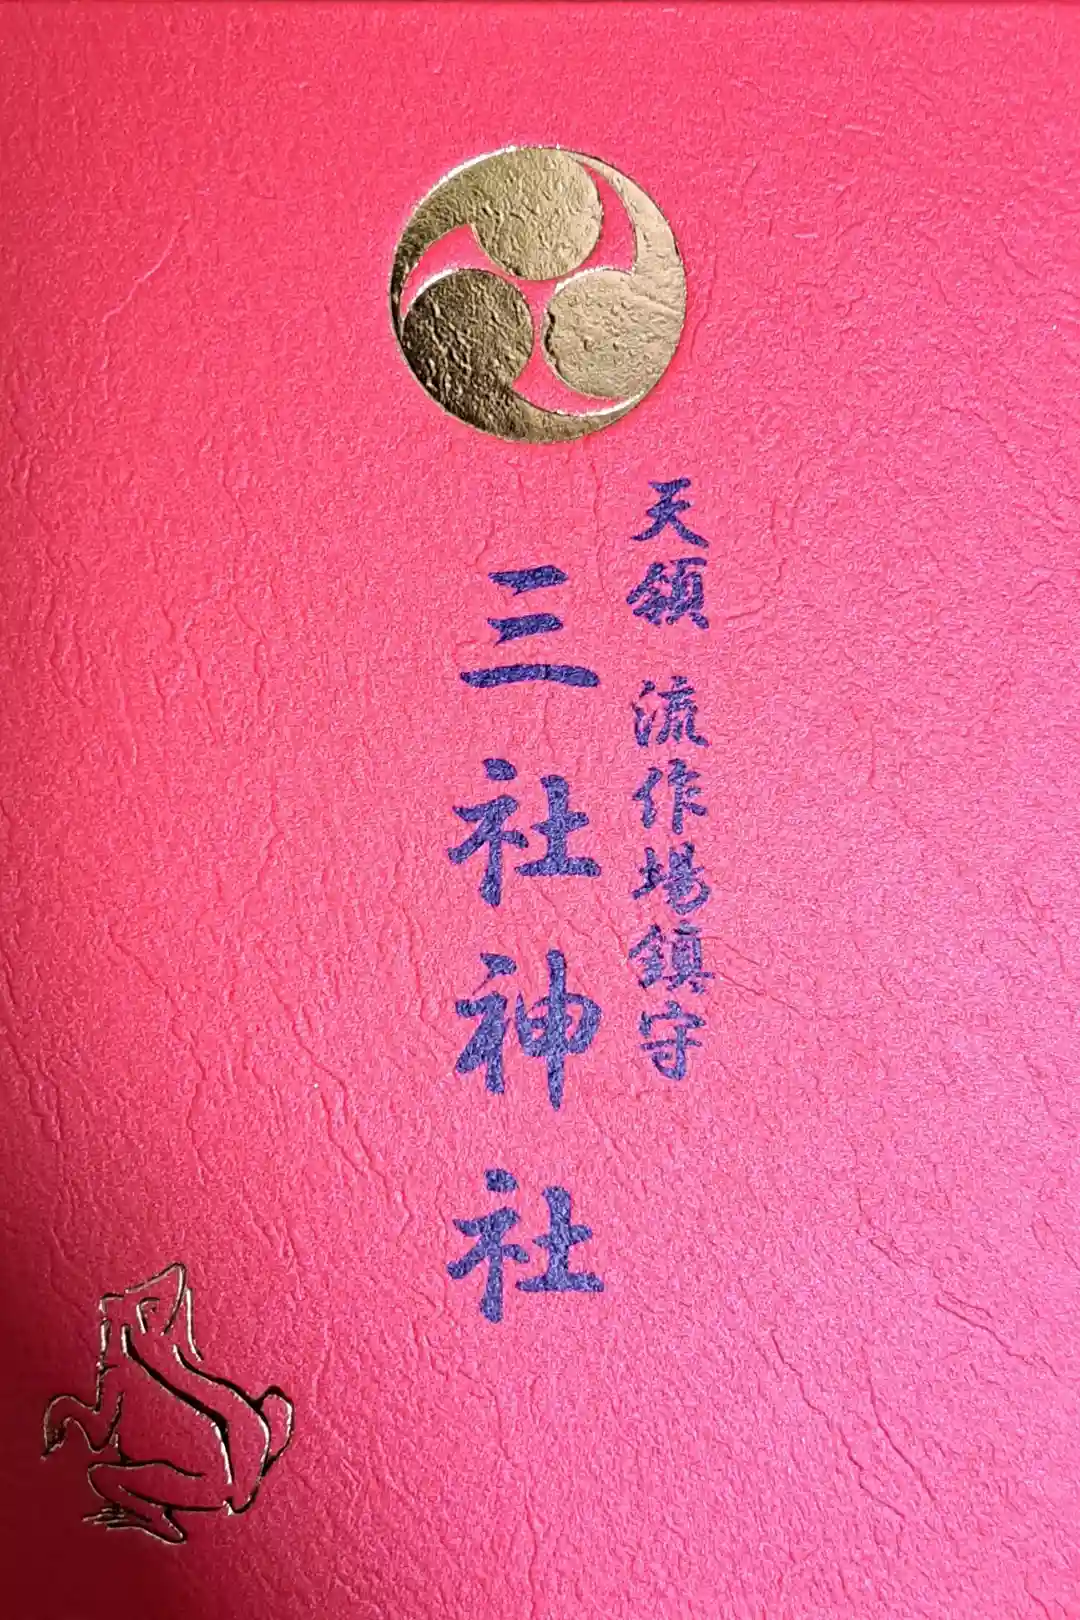 天領 流作場鎮守
三社神社